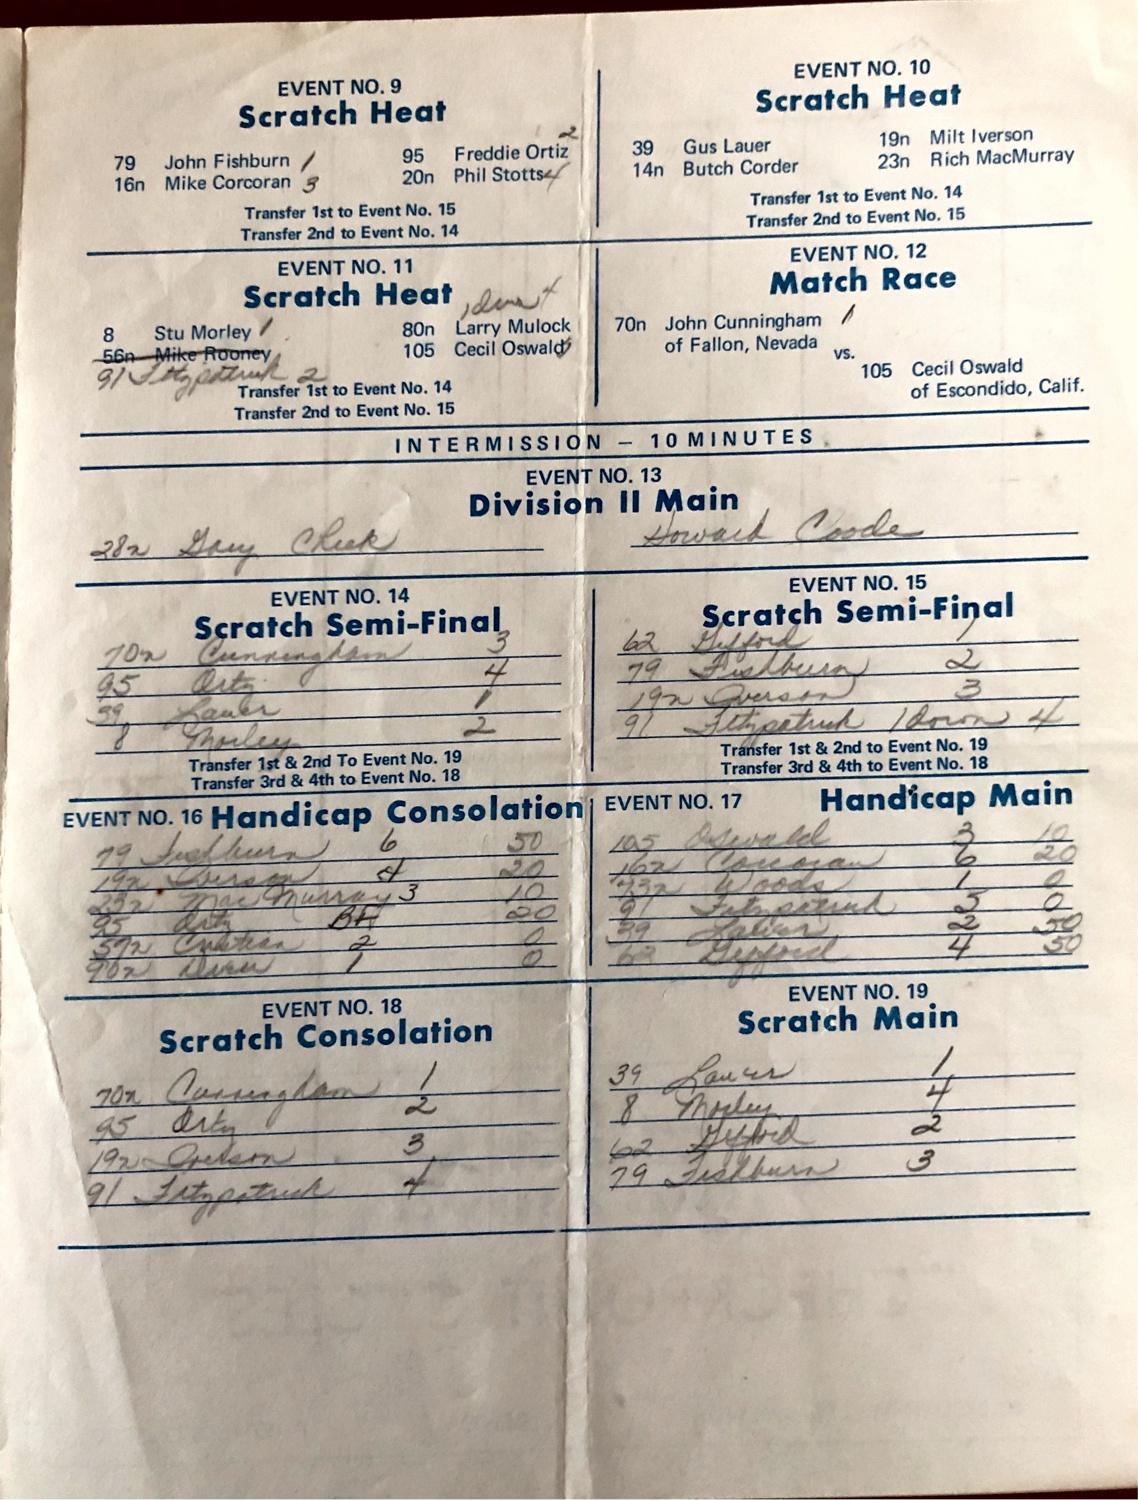 EVENT NO. 9
Scratch Heat
79 John Fishburn 1
95 Freddie Ortiz 2
16n Mike Corcoran 3
20n Phil Stotts 4
Transfer 1st to Event No. 15
Transfer 2nd to Event No. 14
EVENT NO. 10
Scratch Heat
39 Gus Lauer
19n Milt Iverson
14n Butch Corder
23n Rich MacMurray
Transfer 1st to Event No. 14
Transfer 2nd to Event No. 15
EVENT NO. 11
Scratch Heat
8 Stu Morley 1
80n Larry Mulock 4
56n Mike Rooney
105 Cecil Oswald
91 Fitzpatrick 2
Transfer 1st to Event No. 14
Transfer 2nd to Event No. 15
EVENT NO. 12
Match Race
70n John Cunningham 1
of Fallon, Nevada
vs.
105 Cecil Oswald
of Escondido, Calif.
INTERMISSION – 10 MINUTES
EVENT NO. 13
Division II Main
28n Gary Cheek
Howard Coode
EVENT NO. 14
Scratch Semi-Final
70n Cunningham 3
95 Ortz 4
39 Lauer 1
8 Morley 2
Transfer 1st & 2nd To Event No. 19
Transfer 3rd & 4th to Event No. 18
EVENT NO. 15
Scratch Semi-Final
62 Gifford 1
79 Fishburn 2
19n Iverson 3
91 Fitzpatrick 1 Down 4
Transfer 1st & 2nd to Event No. 19
Transfer 3rd & 4th to Event No. 18
EVENT NO. 16 Handicap Consolation
79 Fishburn 6 50
19n Iverson 4 20
23n MacMurray 3 10
95 Ortz 20
2 0
90n 1 0
EVENT NO. 17 Handicap Main
105 Oswald 3 10
16n Corcoran 6 20
Woods 1 0
91 Fitzpatrick 5 0
39 Lauer 2 50
62 Gifford 4 50
EVENT NO. 18
Scratch Consolation
70n Cunningham 1
95 Ortz 2
19n Iverson 3
91 Fitzpatrick 4
EVENT NO. 19
Scratch Main
39 Lauer 1
8 Morley 4
62 Gifford 2
79 Fishburn 3